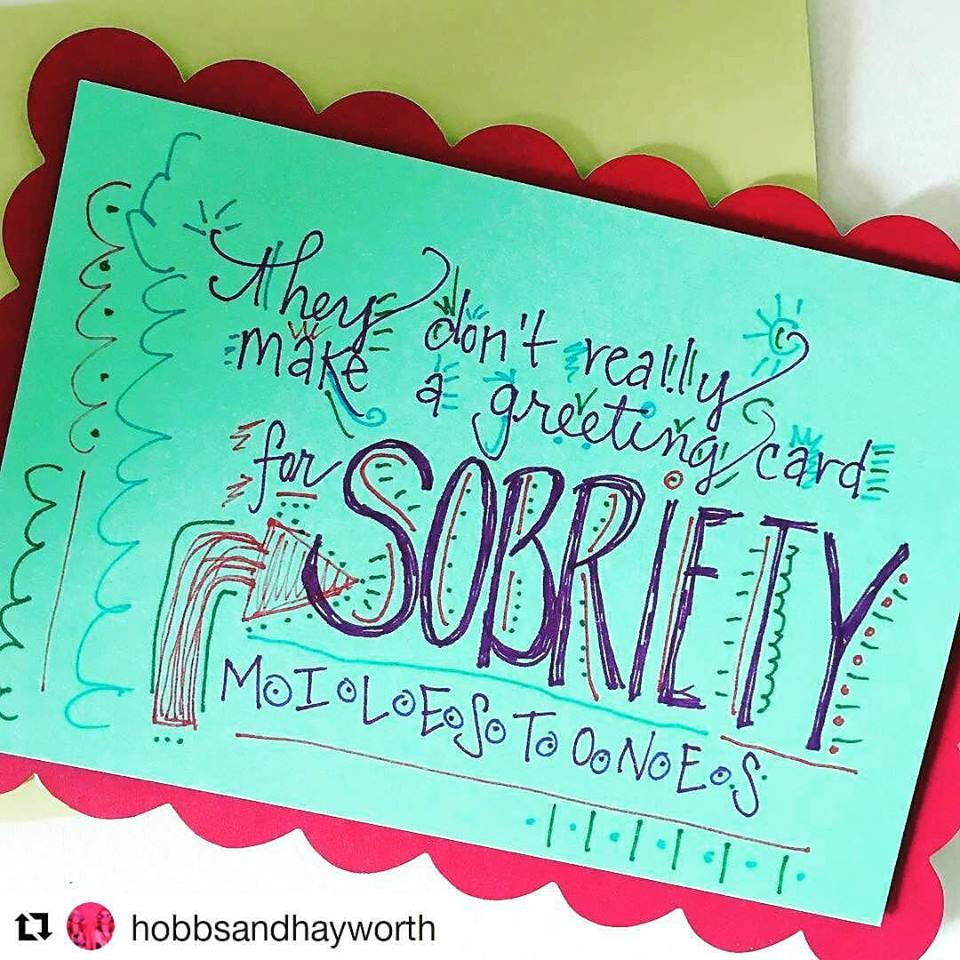 they don't really
make a greeting card
for SOBRIETY
MILESTONES
hobbsandhayworth